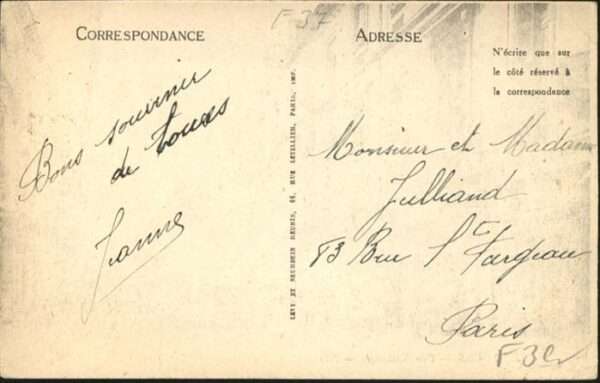 F 37
CORRESPONDANCE
Bons souvenir
de tous
Jeanne
LEVY ET NEURDEIN REUNIS, 44, RUE LETELLIER, PARIS, IMP.
ADRESSE
N'écrire que sur
le côté réservé à
la correspondance
Monsieur et Madame
Julliand
83 Rue St Fargeau
Paris